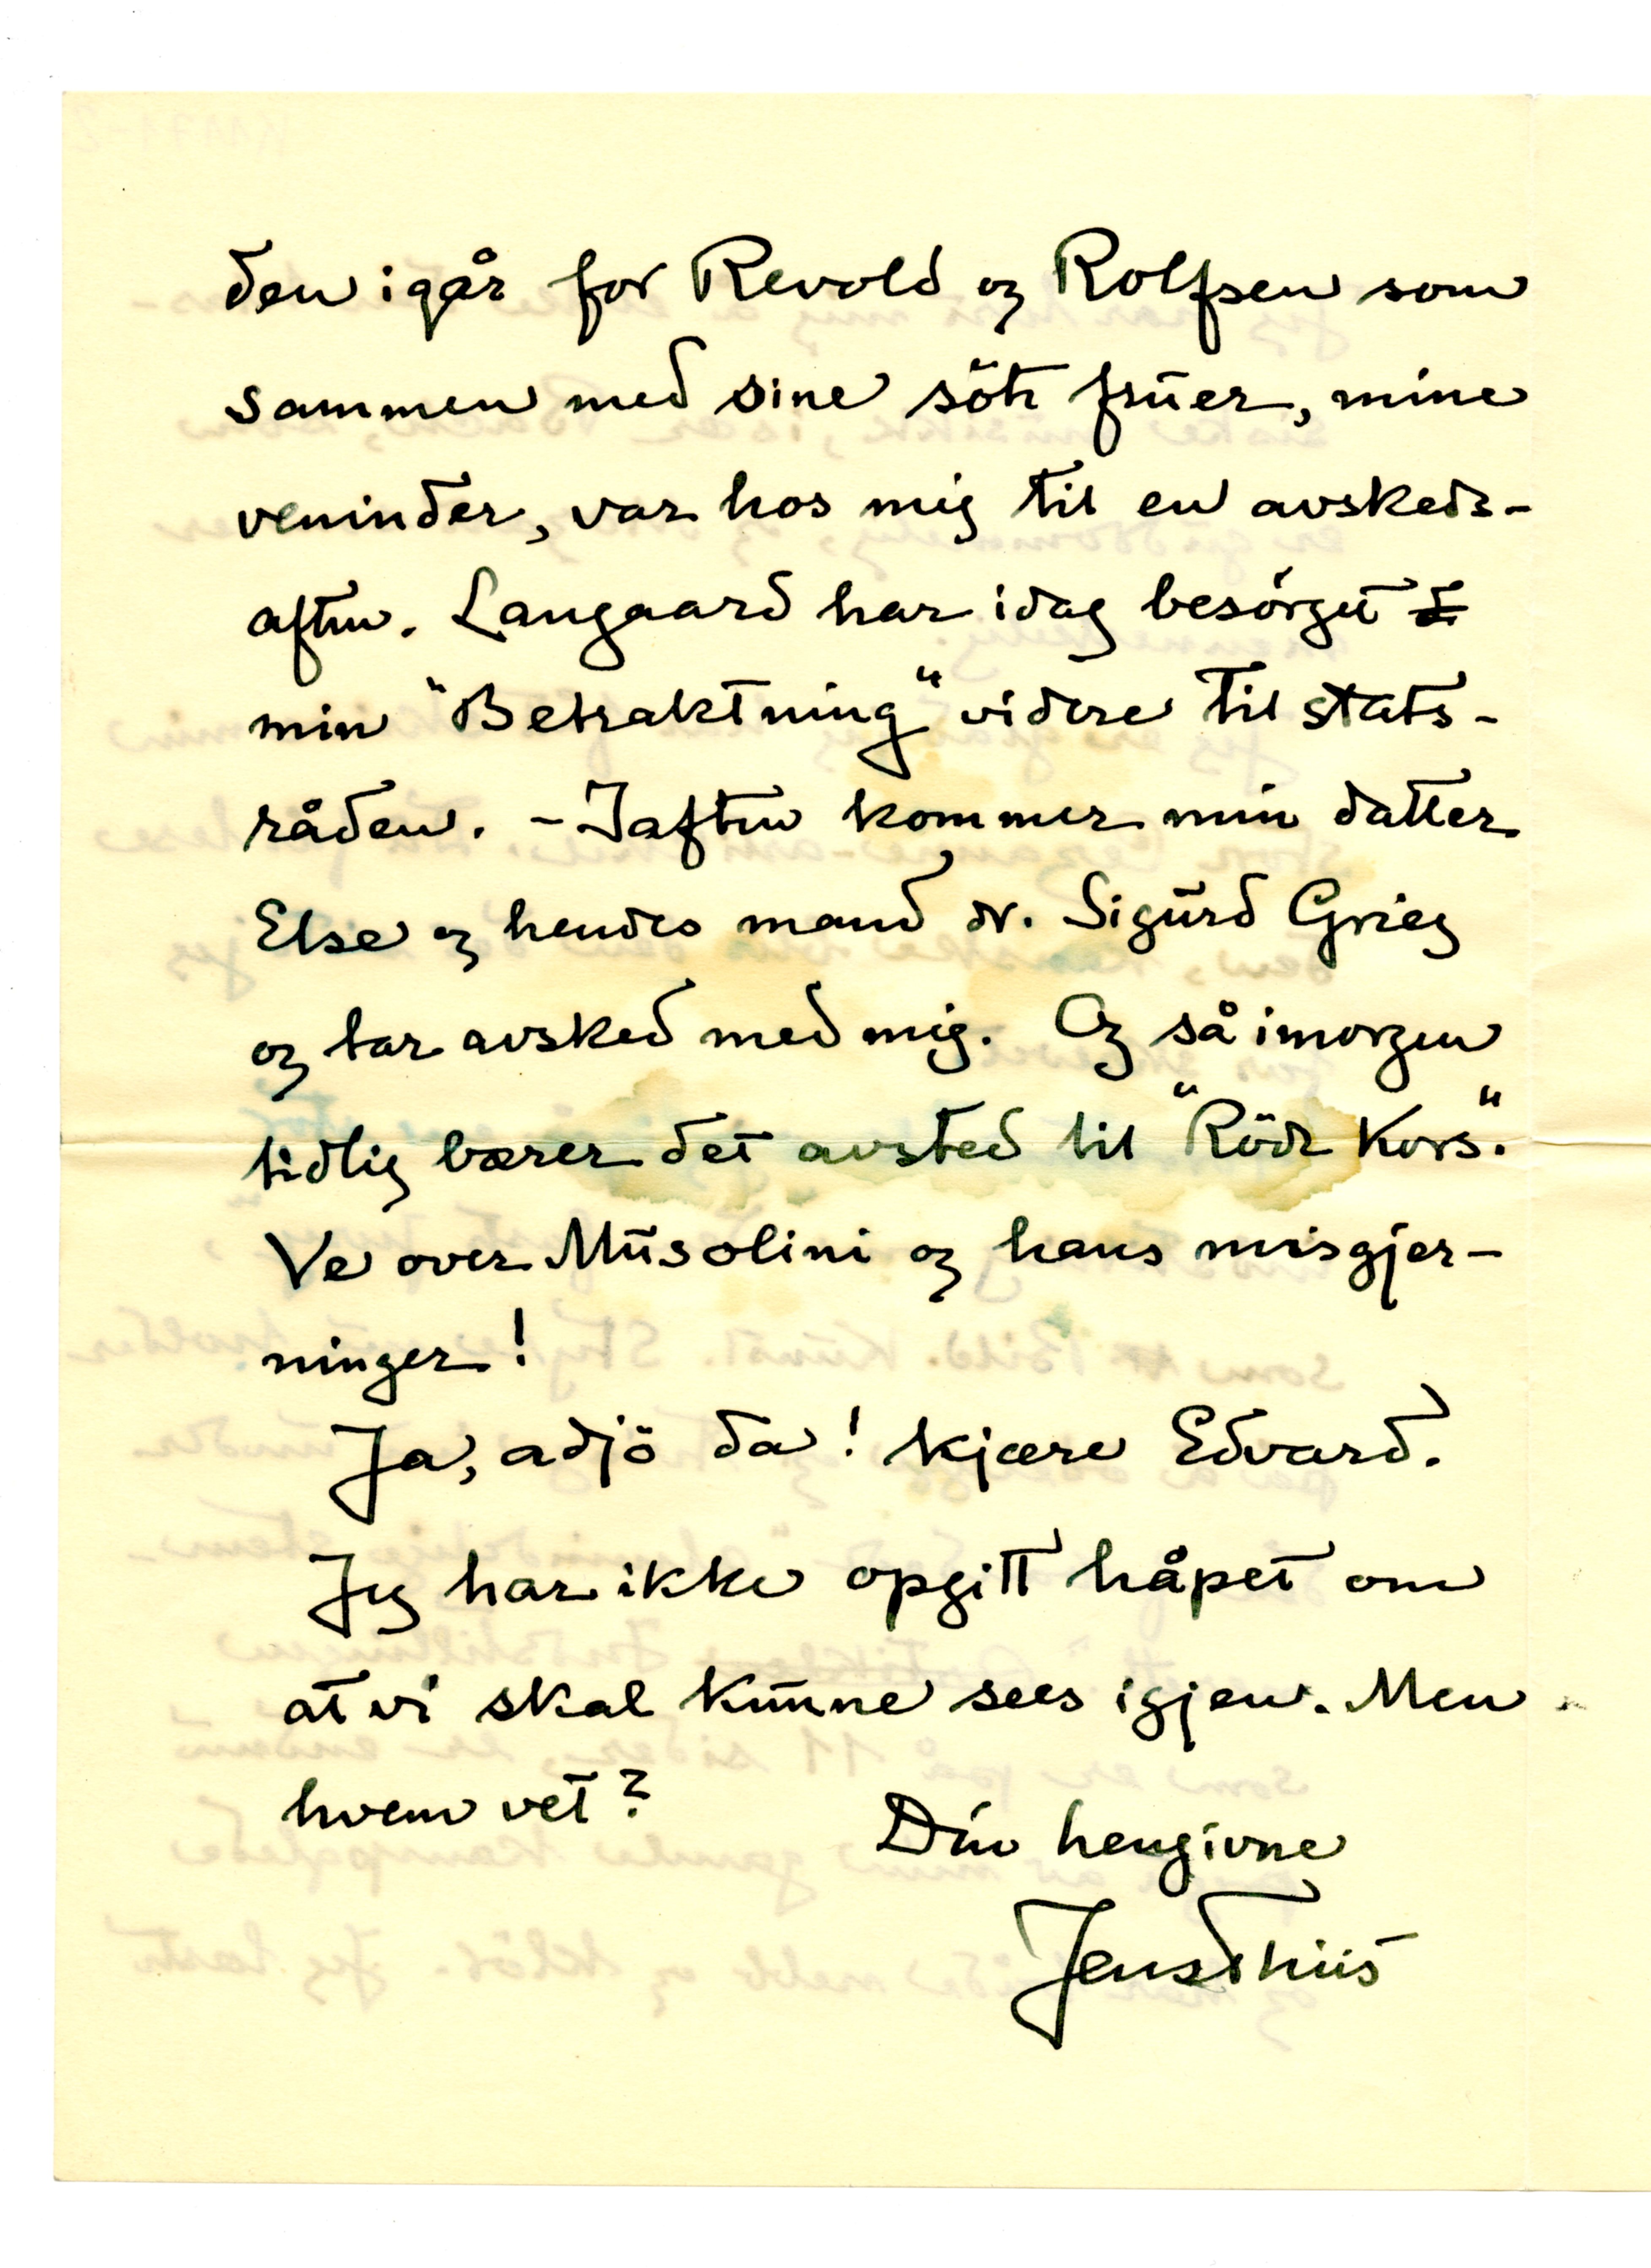 den igår for Revold og Rolfsen som
sammen med sine söte früer, mine
veninder, var hos mig til en avskeds-
aften. Langaard har idag besörget
min "Betraktning" videre til stats-
råden. - Iaften kommer min datter
Else og hendes mand dr. Sigürd Grieg
og tar avsked med mig. Og så imorgen
tidlig bærer det avsted til "Röde Kors."
Ve over Müsolini og hans misgjer-
ninger!
Ja, adjö da! kjære Edvard.
Jeg har ikke opgitt håpet om
at vi skal künne sees igjen. Men
hvem vet?
Din hengivne
Jens Thiis